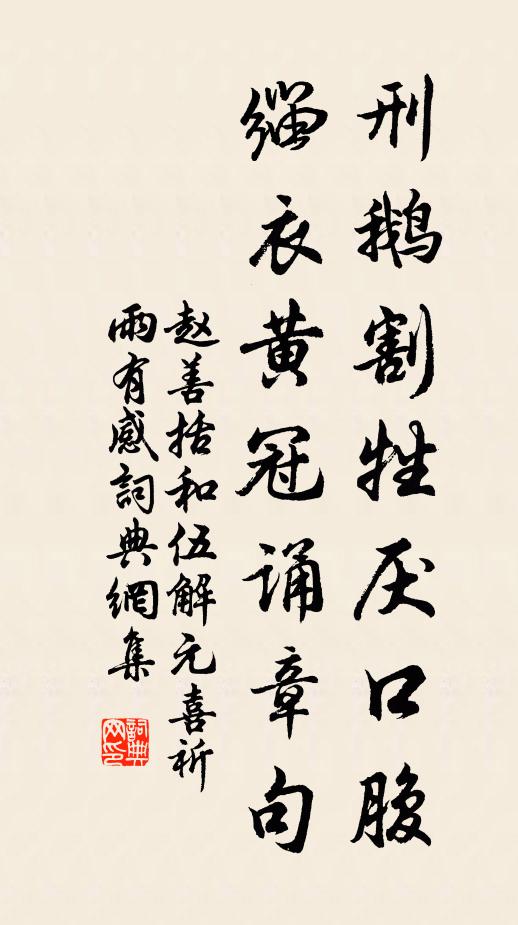 刑鹅割牲厌口腹
缁衣黄冠诵章句
赵善括和伍解元喜祈
雨有感词典網集
詞典网印